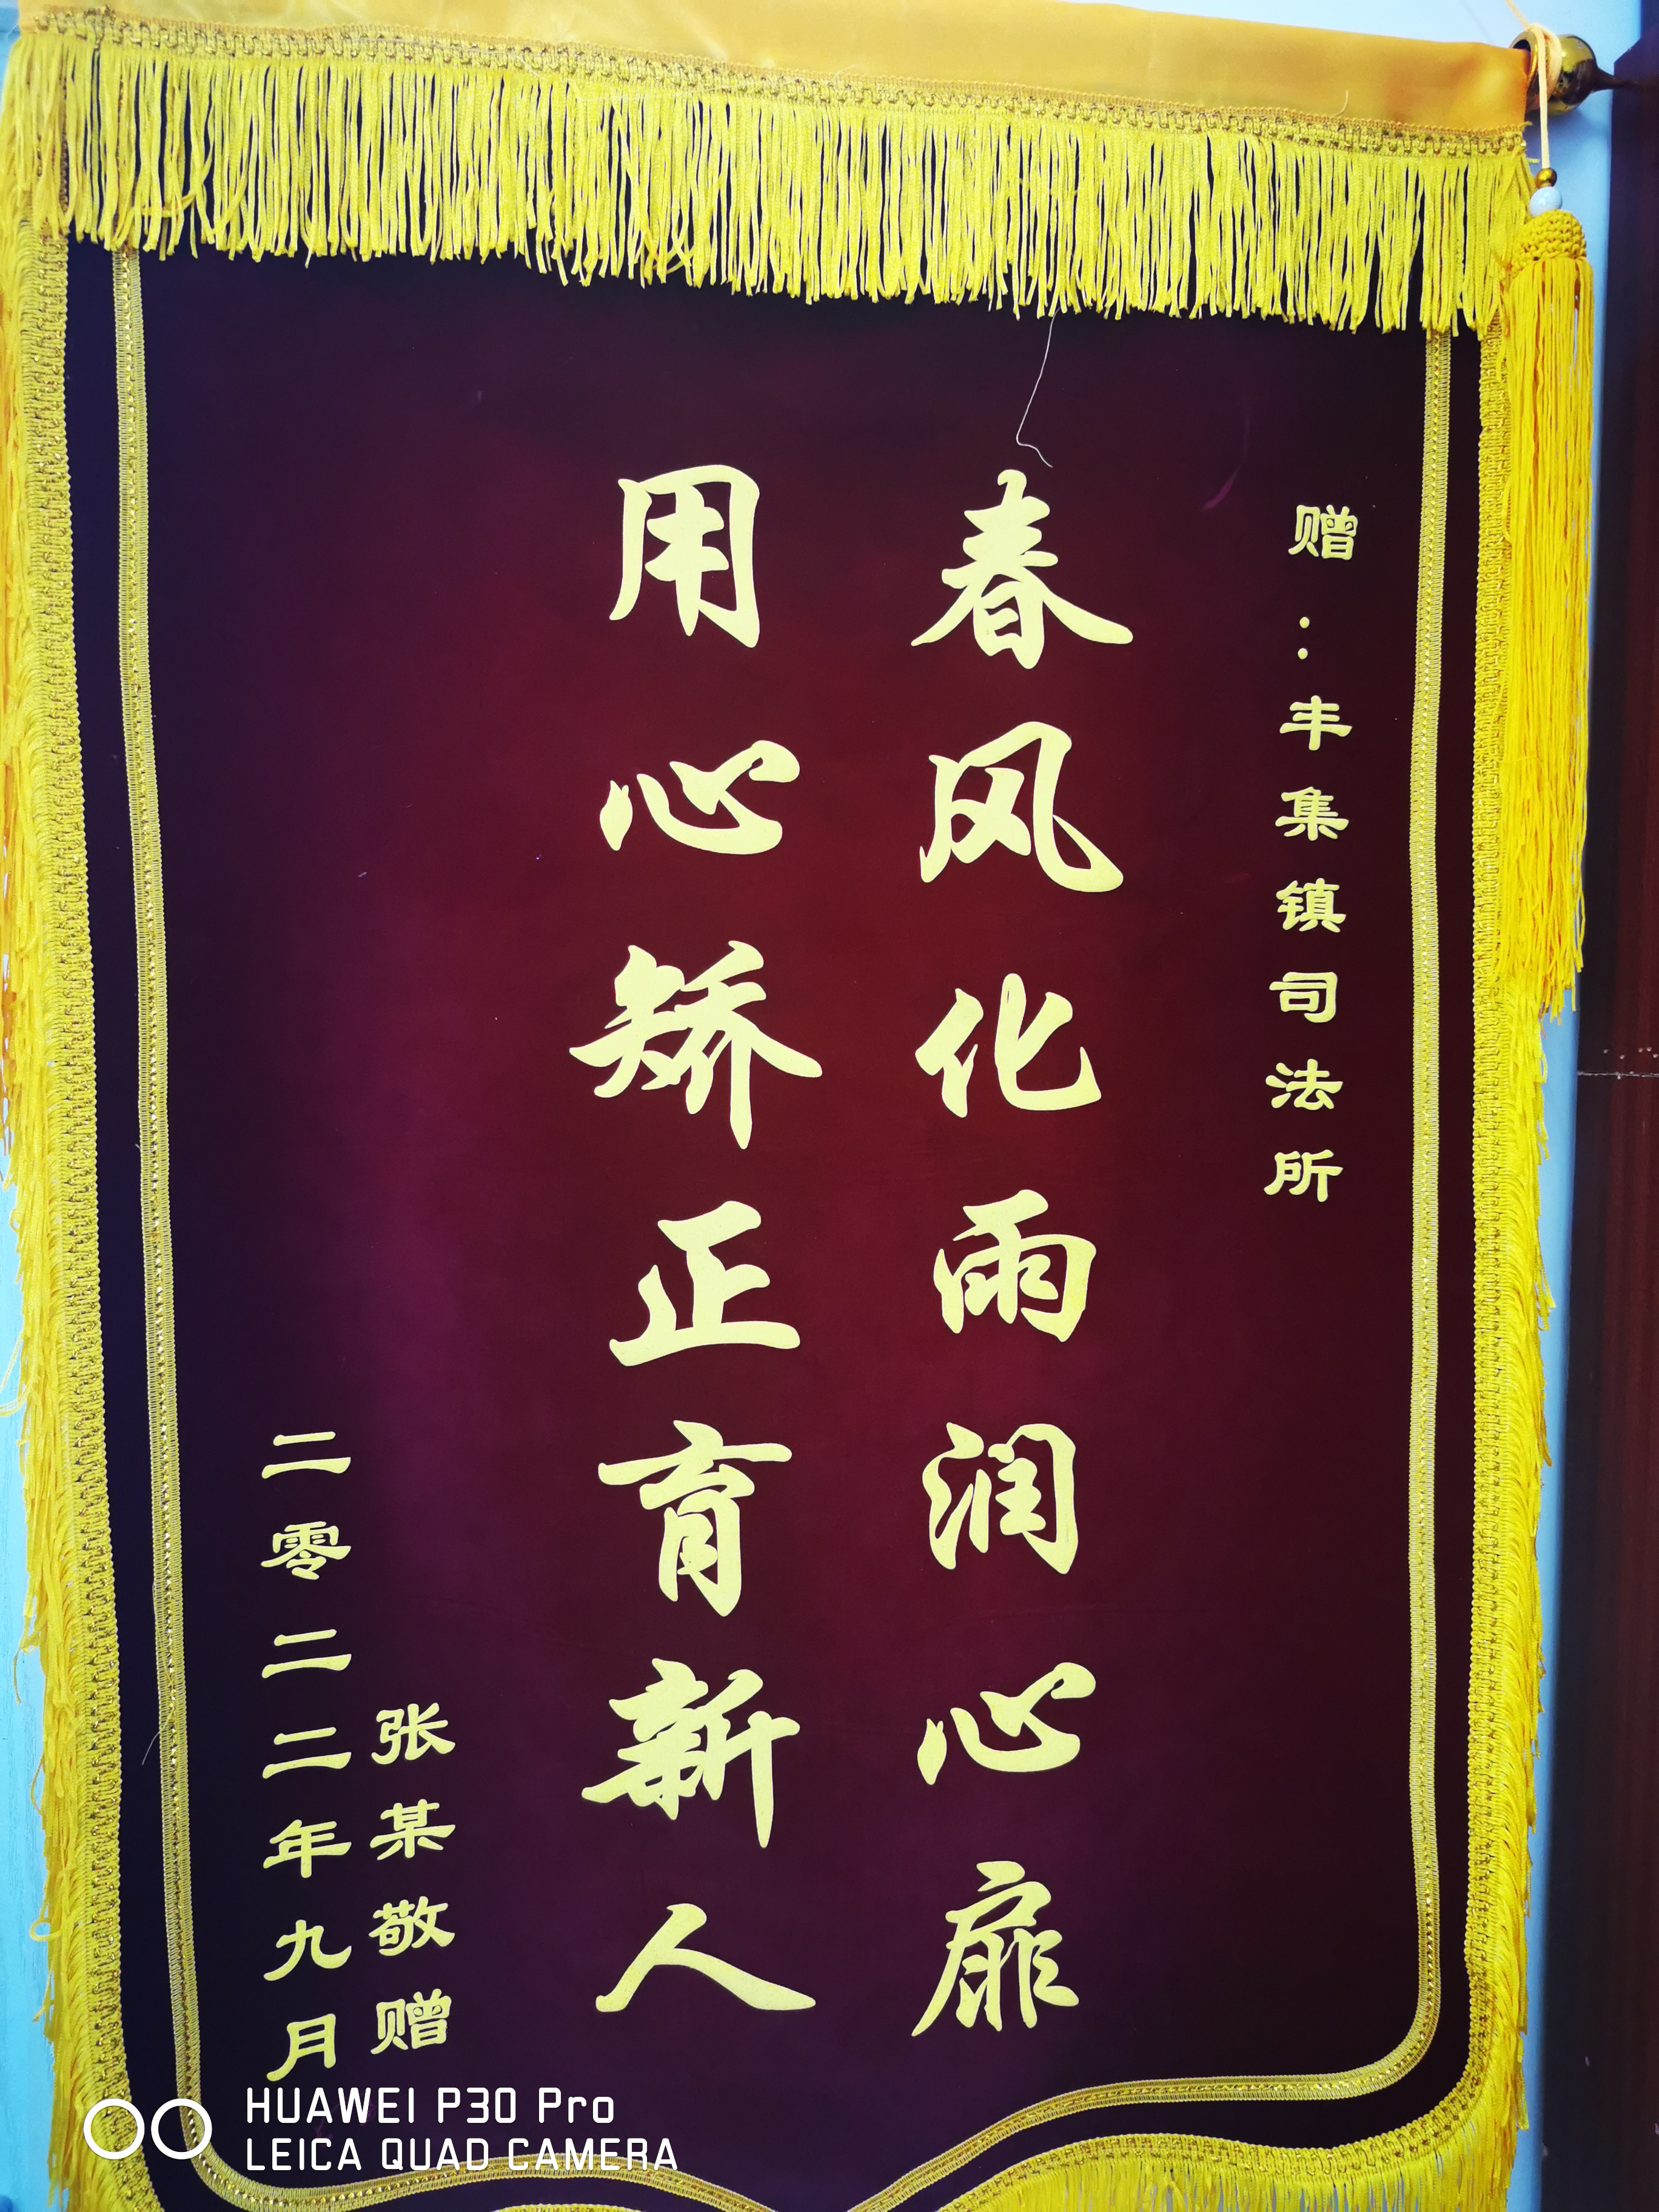 赠:丰集镇司法所
春风化雨润心扉
用心矫正育新人
张某敬赠
二零二二年九月
HUAWEI P30 Pro
LEICA QUAD CAMERA